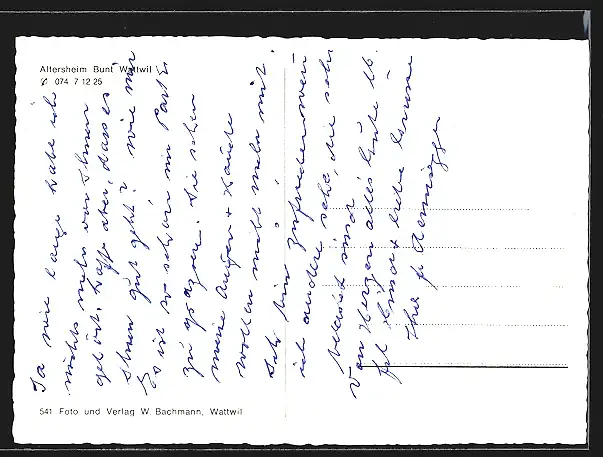 Altersheim Bunt Wattwil
✆ 074 7 12 25
Ja wie lange habe ich
nichts mehr von Ihnen
gehört. Hoffe aber, dass es
Ihnen gut geht? wie mir
Es ist so schön im Park
zu spazieren. Die schon
meine Augen + Hände
wollen nicht mehr mit.
Ich bin zufrieden wenn
ich andere sehe, die sehr
behindert sind
Von Herzen alles Gute Ib.
Frl. + liebe Grüsse
Ihre
541 Foto und Verlag W. Bachmann, Wattwil